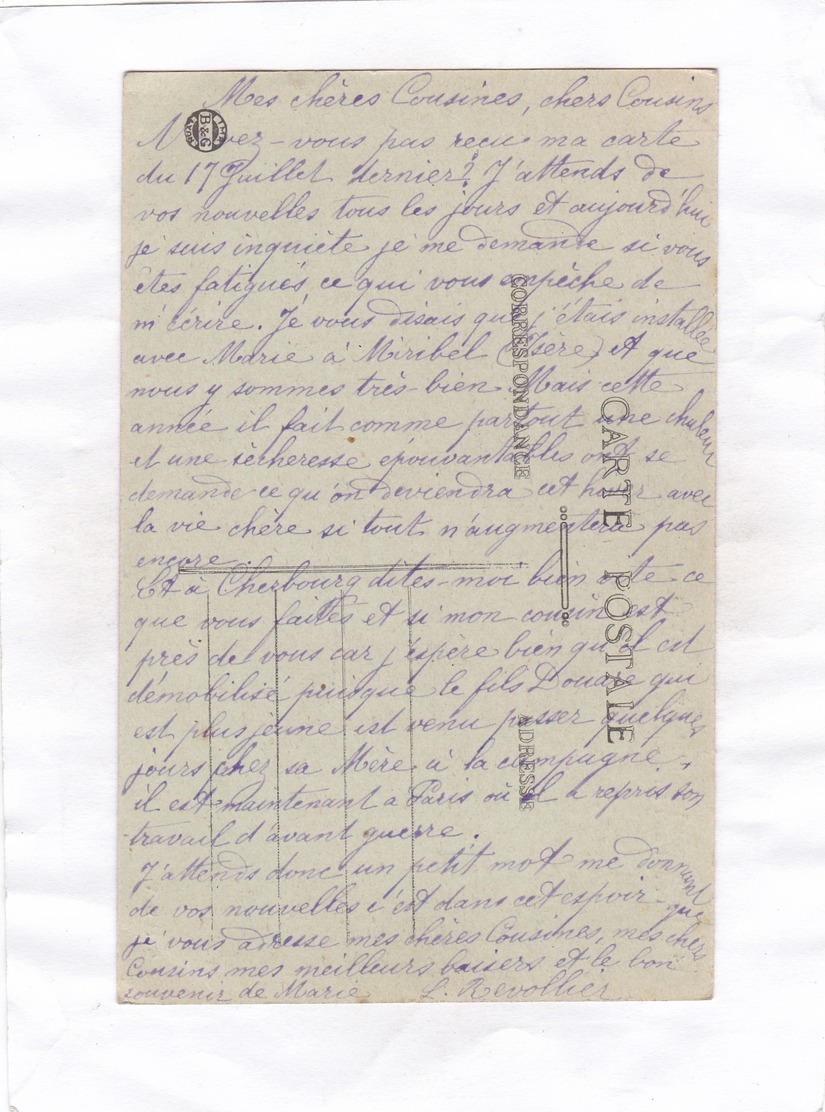 Mes chères Cousines, chers Cousins
N'avez-vous pas reçu ma carte
du 17 Juillet dernier? J'attends de
vos nouvelles tous les jours et aujourd'hui
je suis inquiète je me demande si vous
êtes fatigués ce qui vous empêche de
m'écrire. Je vous disais que j'étais installée
avec Marie à Miribel (Isère) et que
nous y sommes très-bien. Mais cette
année il fait comme partout une chaleur
et une sècheresse épouvantables on se
demande ce qu'on deviendra cet hiver avec
la vie chère si tout n'augmentera pas
encore.
Et à Cherbourg dites-moi bien vite ce
que vous faites et si mon cousin est
près de vous car j'espère bien qu'il est
démobilisé puisque le fils Douare qui
est plus jeune est venu passer quelques
jours chez sa Mère à la campagne,
il est maintenant a Paris où il a repris son
travail d'avant guerre.
J'attends donc un petit mot me donnant
de vos nouvelles c'est dans cet espoir que
je vous adresse mes chères Cousines, mes chers
Cousins mes meilleurs baisers et le bon
souvenir de Marie L. Revollier
CARTE POSTALE
CORRESPONDANCE
ADRESSE
IMP.
B&G